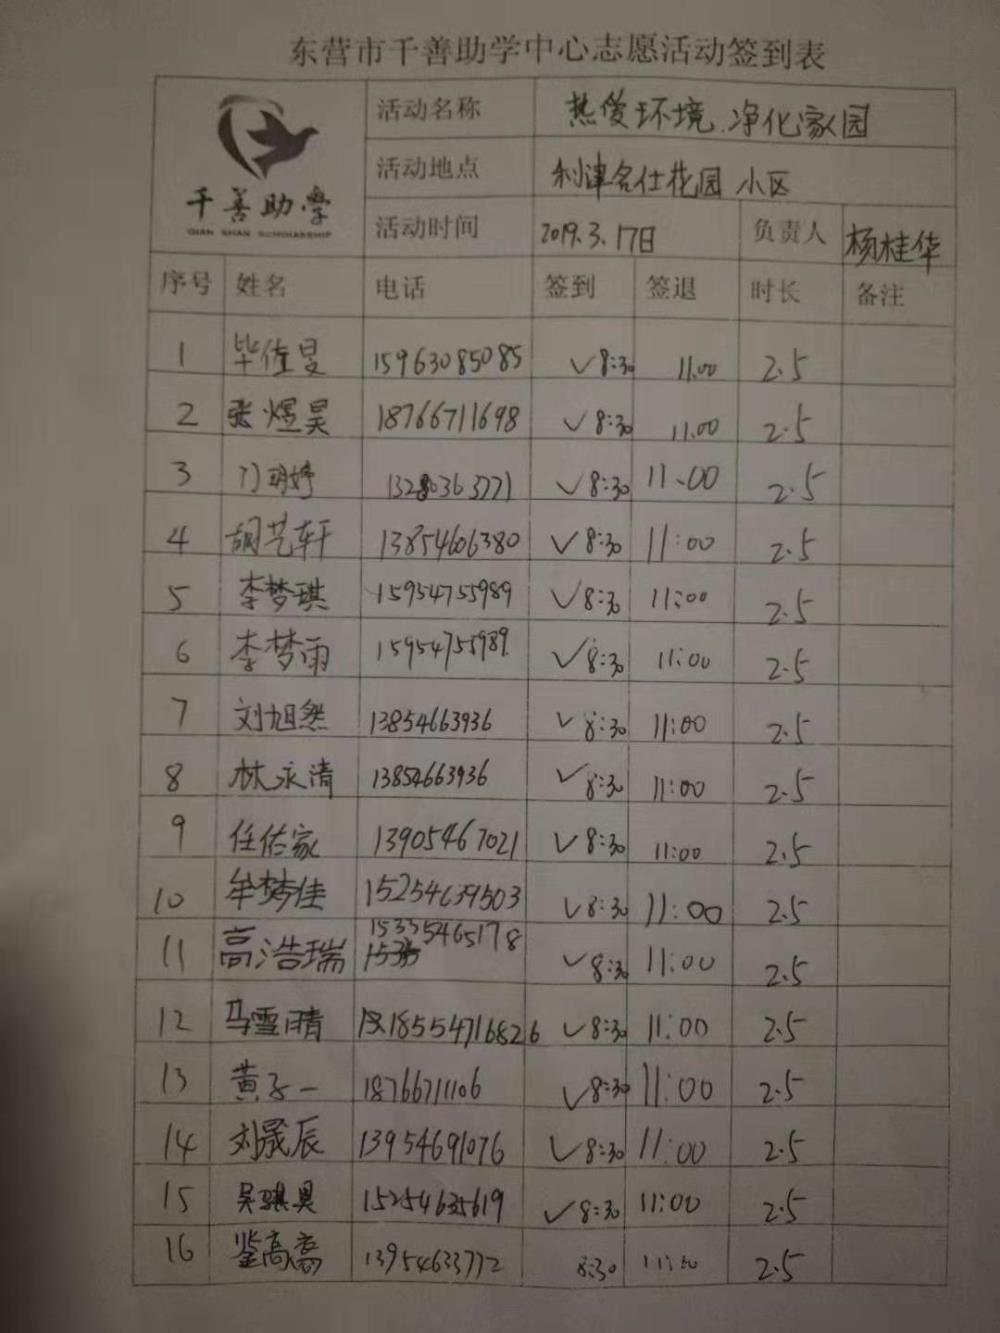 东营市千善助学中心志愿活动签到表
千善助学
QIAN SHAN SCHOLARSHIP
活动名称 热爱环境、净化家园
活动地点 利津名仕花园 小区
活动时间 2019.3.17日 负责人 杨桂华
序号 姓名 电话 签到 签退 时长 备注
1 毕佐旻 15963085085 ✓8:30 11.00 2.5
2 张煜昊 18766711698 ✓8:30 11.00 2.5
3 门玥婷 13280363771 ✓8:30 11、00 2.5
4 胡艺轩 13854606380 ✓8:30 11:00 2.5
5 李梦琪 15954755989 ✓8:30 11:00 2.5
6 李梦雨 15954755989 ✓8:30 11:00 2.5
7 刘旭然 13854663936 ✓8:30 11:00 2.5
8 林永清 13854663936 ✓8:30 11:00 2.5
9 任佑家 13905467021 ✓8:30 11:00 2.5
10 牟梦佳 15254639503 ✓8:30 11:00 2.5
11 高浩瑞 15335465178 ✓8:30 11:00 2.5
12 马雪晴 18554716826 ✓8:30 11:00 2.5
13 黄子一 18766711106 ✓8:30 11:00 2.5
14 刘晟辰 13954691076 ✓8:30 11:00 2.5
15 吴骐昊 15254635619 ✓8:30 11:00 2.5
16 高 13954633772 8:30 11:00 2.5